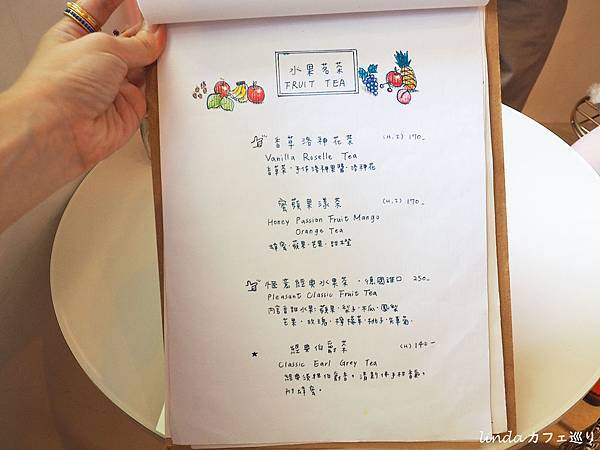 水果茗茶
FRUIT TEA
香草洛神花茶 (H.I) 170.-
Vanilla Roselle Tea
香草茶.手作洛神果醬.洛神花
蜜蘋果漾茶 (H.I) 170.-
Honey Passion Fruit Mango
Orange Tea
蜂蜜.蘋果.芒果.甜橙
經典水果茶.德國進口 250.-
Pleasant Classic Fruit Tea
內含香甜水果:蘋果.梨子.木瓜.鳳梨
芒果.玫瑰.檸檬草.桃子.矢車菊
經典伯爵茶 (H) 140.-
Classic Earl Grey Tea
附蜂蜜。
lindaカフェ巡り